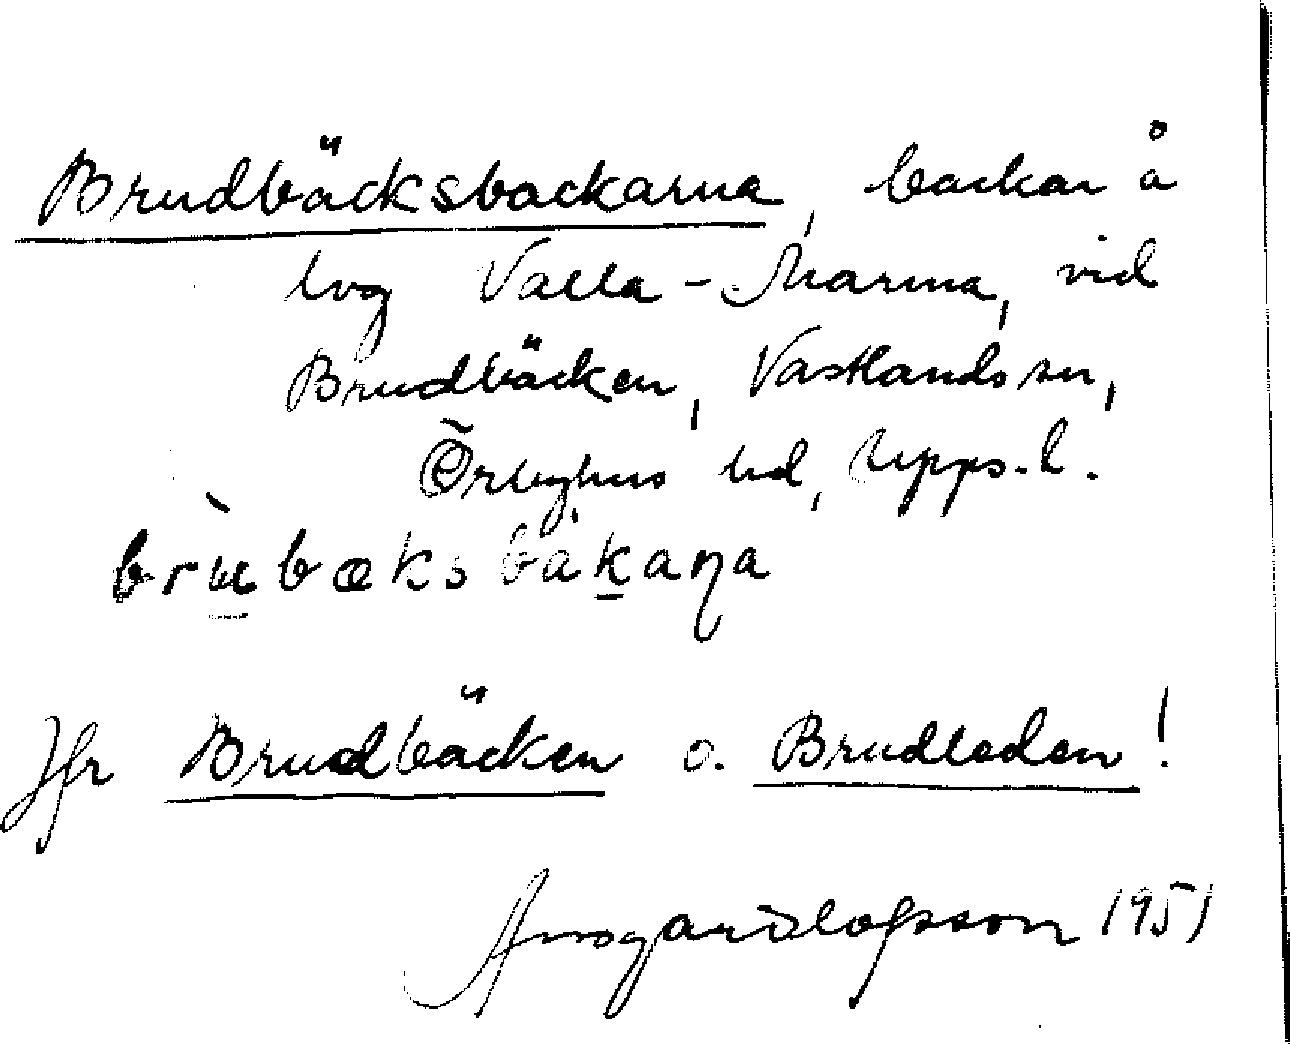 Brudbäcksbackarna, backar å
lvg Valla-Marma, vid
Brudbäcken, Västlands sn,
Örbyhus hd, Upps. l.
brubæksbakaṇa
Jfr Brudbäcken o. Brudleden!
Olofsson 1951